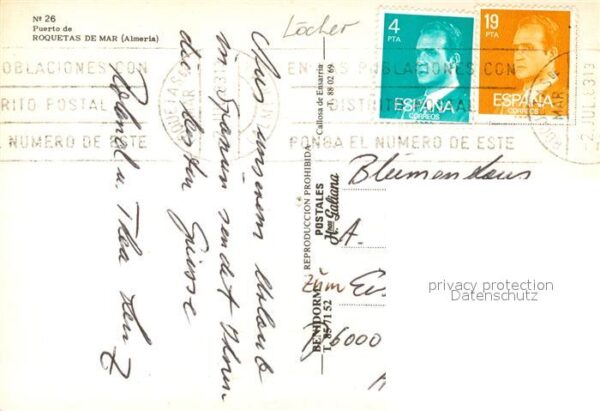 Nº 26
Puerto de
ROQUETAS DE MAR (Almería)
Löcher
4
PTA
ESPAÑA
CORREOS
19
PTA
ESPAÑA
CORREOS
OBLACIONES CON
RITO POSTAL
NUMERO DE ESTE
EN LAS POBLACIONES CON
DISTRITO POSTAL
PONGA EL NUMERO DE ESTE
Aus unserem Urlaub
in Spanien sendet Ihnen
die besten
Grüsse
Roland u. Thea
REPRODUCCION PROHIBIDA
Callosa de Ensarriá
T. 88 02 69
POSTALES
Hnos Galiana
BENIDORM
T. 85 71 52
Blumenhaus
A.
zum
6000
privacy protection
Datenschutz